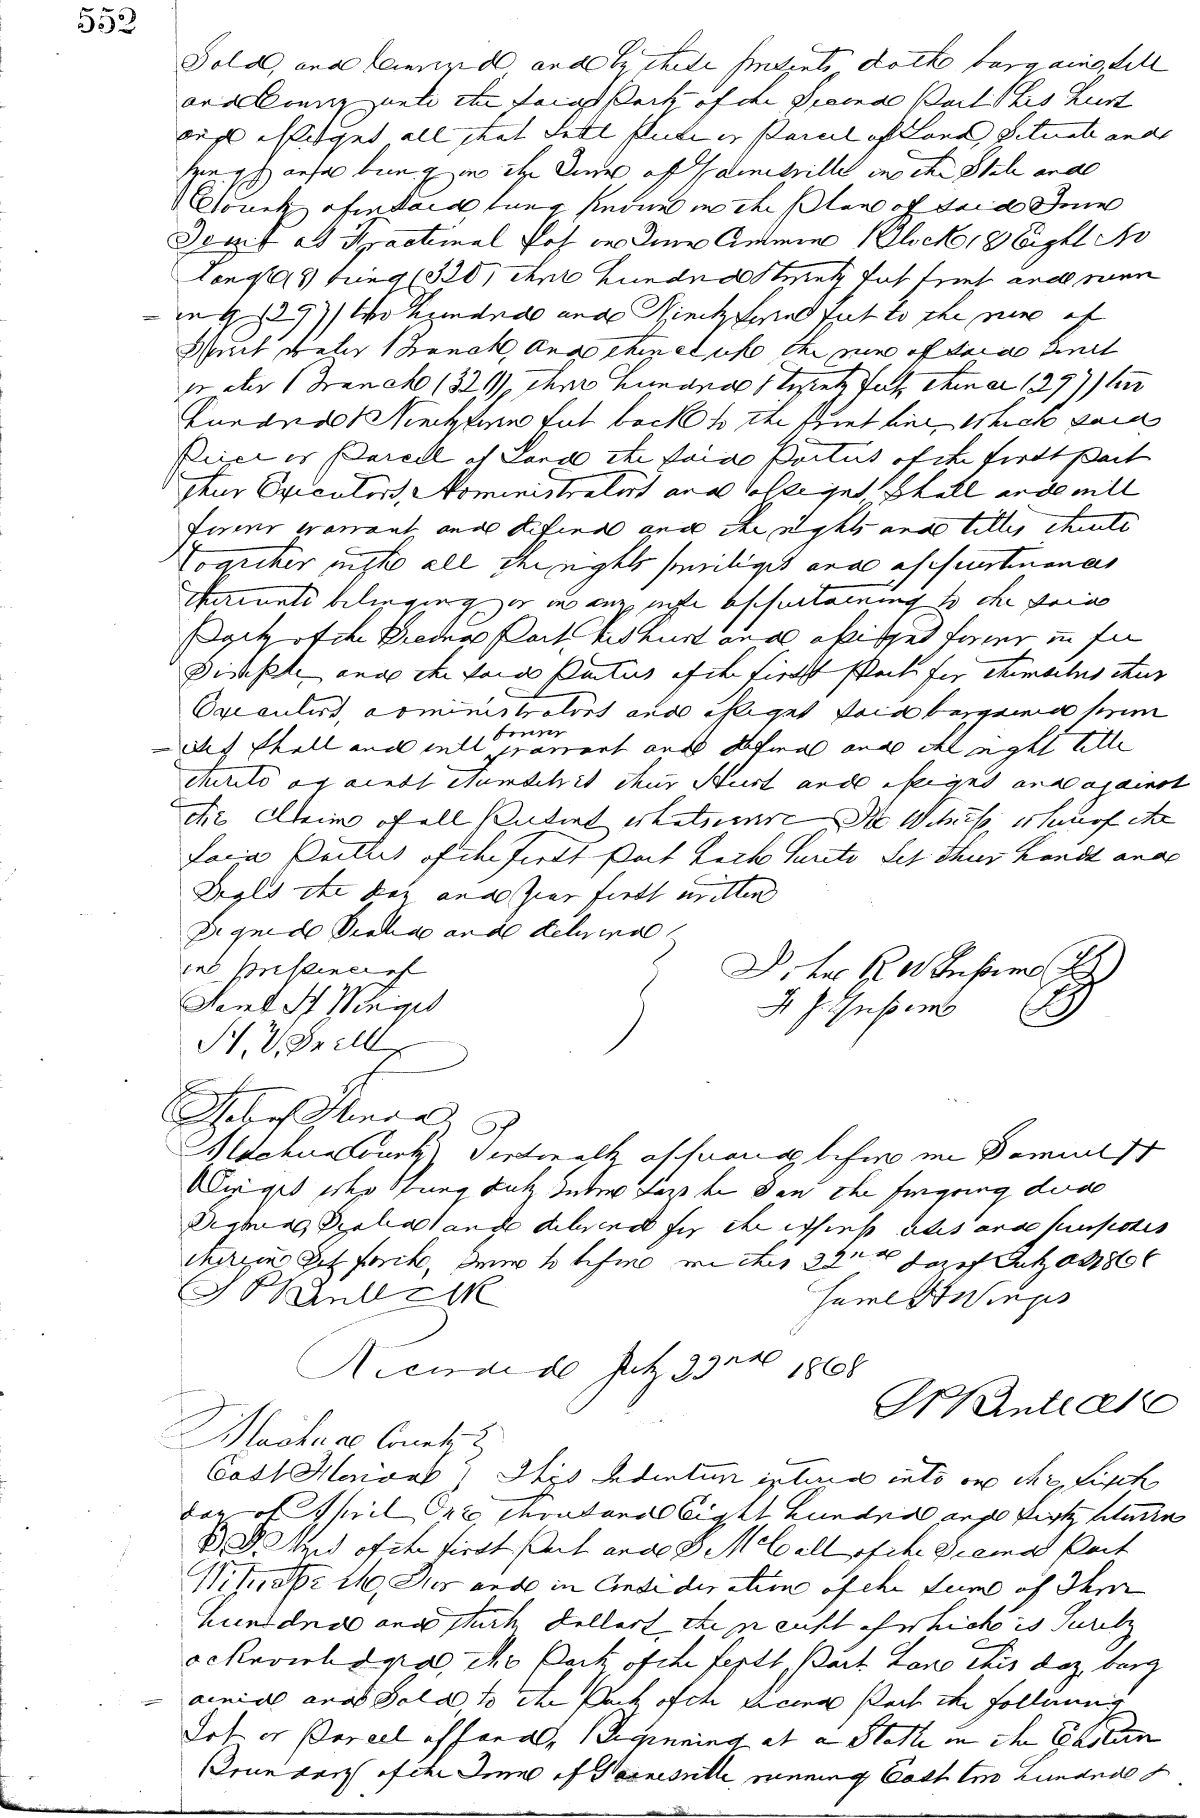 552
Sold, and Conveyed and by these presents doth bargain, sell
and Convey unto the said Party of the Second Part his heirs
and assigns all that Lott piece or Parcel of Land, Situate and
lying and being in the Town of Gainesville in the State and
County aforesaid, being Known in the plan of said Town
To wit as Fractional Lot on Town Common Block (8) Eight No
(8) being (320) three hundred & twenty feet front and runn
=ing (297) two hundred and Ninety seven feet to the run of
Sweet water Branch, and thence up the run of said Sweet
water Branch (320) three hundred & twenty feet, thence (297) two
hundred & Ninety seven feet back to the front line, which said
Piece or Parcel of Land the said Parties of the first part
their Executors, Administrators and assigns, Shall and will
forever warrant and defend and the rights and titles thereto
Together with all the rights privileges and appurtenances
thereunto belonging or in any wise appertaining to the said
Party of the Second Part, his heirs and assigns forever in fee
Simple, and the said Parties of the first Part for themselves their
Executors, administrators and assigns said bargained prem
=ises shall and will forever warrant and defend and the right title
thereto against themselves their Heirs and assigns and against
the Claim of all Persons whatsoever In Witness whereof the
said Parties of the first Part hath hereto set their hands and
Seals the day and year first written
Signed Sealed and delivered
in presence of
Saml H Wiriges
H. V. Snell
R W
State of Florida
Alachua County Personally appeared before me Samuel H
who being duly Sworn says he Saw the forgoing deed
Signed, Sealed and delivered for the express uses and purposes
therein set forth, Sworn to before me this 22nd day of July AD 1868
Saml H
Recorded July 22nd 1868
Alachua County
East Florida This Indenture entered into on the Sixth
day of April One thousand Eight hundred and Sixty between
of the first Part and S McCall of the Second Part
Witnesseth, For and in Consideration of the Sum of Three
hundred and thirty dollars, the receipt of which is hereby
acknowledged, the Party of the first Part have this day barg
=ained and Sold, to the Party of the Second Part the following
Lot or Parcel of Land, Beginning at a Stake on the Eastern
Boundary of the Town of Gainesville running East two hundred &